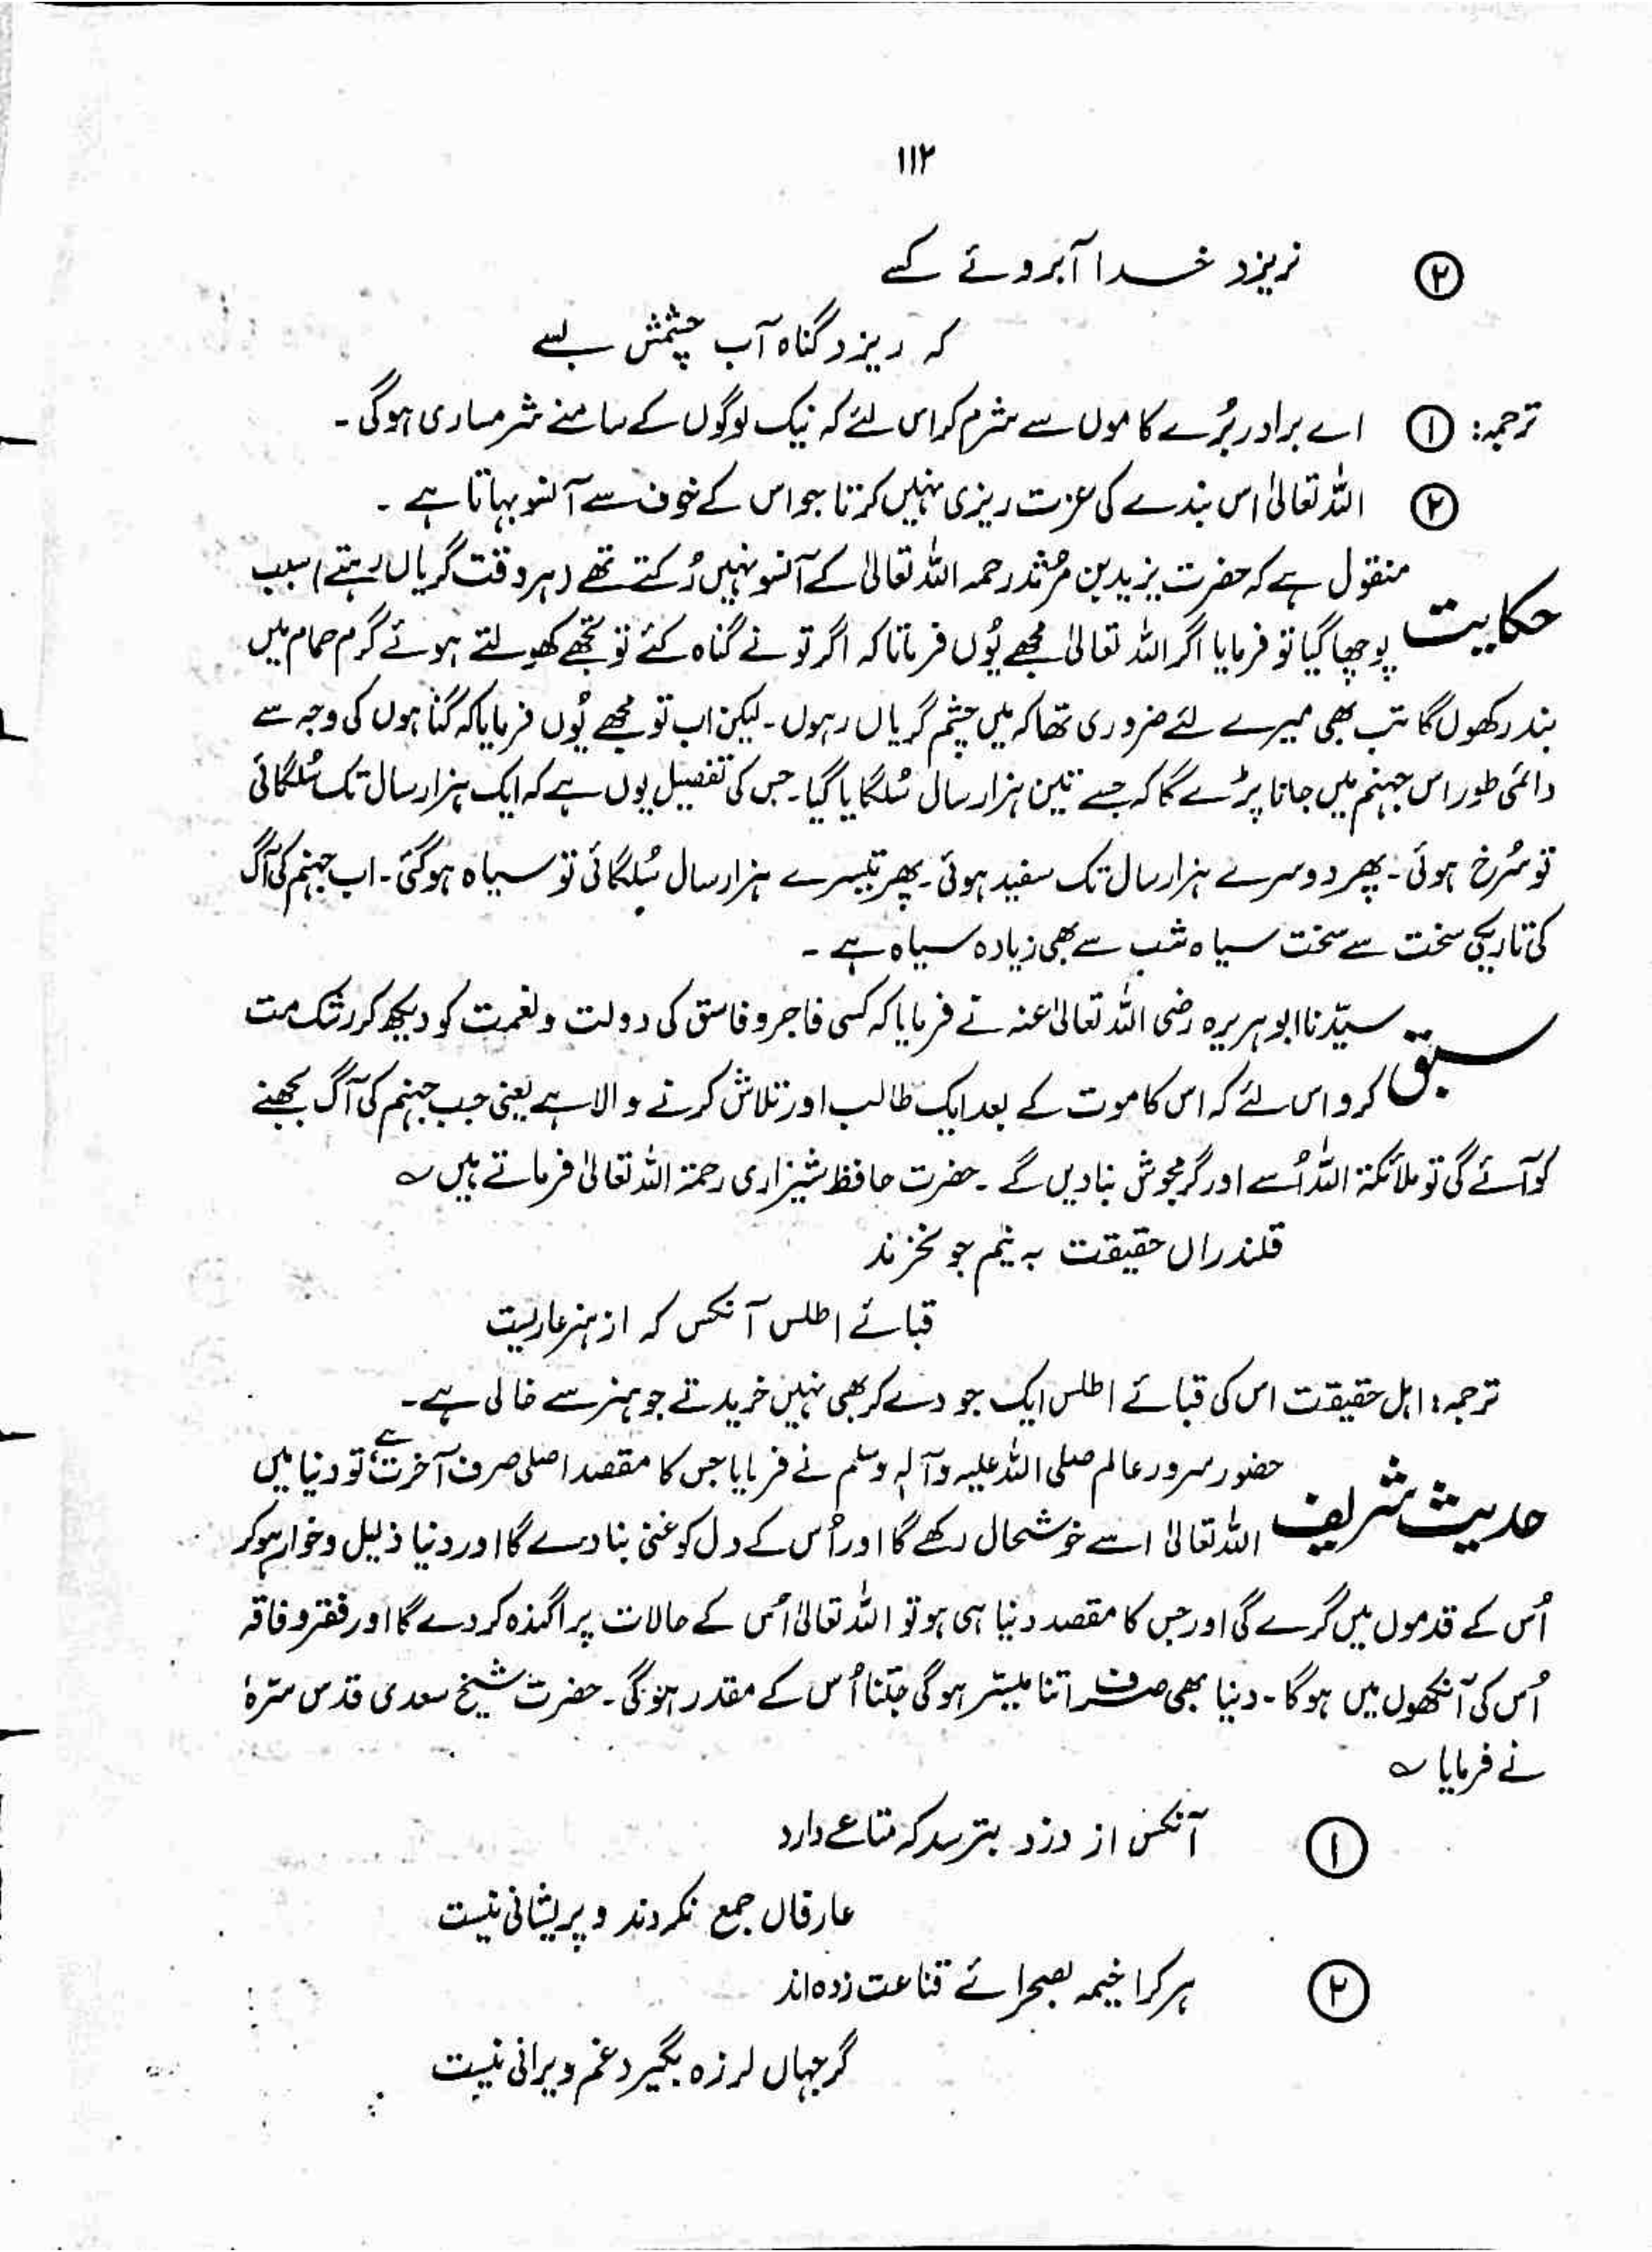 ۱۱۲
۲ نریزد خدا آبروئے کسے
کہ ریزد گناہ آب چشمش بسے
ترجمہ: ۱ اے برادر بُرے کاموں سے شرم کر اس لئے کہ نیک لوگوں کے سامنے شرمساری ہوگی۔
۲ اللہ تعالیٰ اس بندے کی عزت ریزی نہیں کرتا جو اس کے خوف سے آنسو بہاتا ہے۔
حکایت منقول ہے کہ حضرت یزید بن مرثد رحمہ اللہ تعالیٰ کے آنسو نہیں رُکتے تھے (ہر وقت گریاں رہتے) سبب
پوچھا گیا تو فرمایا اگر اللہ تعالیٰ مجھے یُوں فرماتا کہ اگر تو نے گناہ کئے تو تجھے کھولتے ہوئے گرم حمام میں
بند رکھوں گا تب بھی میرے لئے ضروری تھا کہ میں چشم گریاں رہوں۔ لیکن اب تو مجھے یُوں فرمایا کہ گناہوں کی وجہ سے
دائمی طور اس جہنم میں جانا پڑے گا کہ جسے تین ہزار سال سُلگایا گیا۔ جس کی تفصیل یوں ہے کہ ایک ہزار سال تک سُلگائی
تو سُرخ ہوئی۔ پھر دوسرے ہزار سال تک سفید ہوئی۔ پھر تیسرے ہزار سال سُلگائی تو سیاہ ہوگئی۔ اب جہنم کی آگ
کی تاریکی سخت سے سخت سیاہ شب سے بھی زیادہ سیاہ ہے۔
سبق سیّدنا ابو ہریرہ رضی اللہ تعالیٰ عنہ نے فرمایا کہ کسی فاجر و فاسق کی دولت و نعمت کو دیکھ کر رشک مت
کرو اس لئے کہ اس کا موت کے بعد ایک طالب اور تلاش کرنے والا ہے یعنی جب جہنم کی آگ بجھنے
کو آئے گی تو ملائکۃ اللہ اُسے اور گرمجوش بنا دیں گے۔ حضرت حافظ شیرازی رحمۃ اللہ تعالیٰ فرماتے ہیں ؎
قلندراں حقیقت بہ نیم جو نخرند
قبائے اطلس آنکس کہ از ہنر عاریست
ترجمہ: اہل حقیقت اس کی قبائے اطلس ایک جو دے کر بھی نہیں خریدتے جو ہنر سے خالی ہے۔
حدیث شریف حضور سرور عالم صلی اللہ علیہ وآلہٖ وسلم نے فرمایا جس کا مقصد اصلی صرف آخرت ہے تو دنیا میں
اللہ تعالیٰ اسے خوشحال رکھے گا اور اُس کے دل کو غنی بنا دے گا اور دنیا ذلیل و خوار ہو کر
اُس کے قدموں میں گرے گی اور جس کا مقصد دنیا ہی ہو تو اللہ تعالیٰ اُس کے حالات پراگندہ کر دے گا اور فقر و فاقہ
اُس کی آنکھوں میں ہوگا۔ دنیا بھی صرف اتنا میسّر ہوگی جتنا اُس کے مقدر ہوگی۔ حضرت شیخ سعدی قدس سرّہٗ
نے فرمایا ؎
۱ آنکس از دزد بترسد کہ متاعے دارد
عارفاں جمع نکردند و پریشانی نیست
۲ ہر کرا خیمہ بصحرائے قناعت زدہ اند
گر جہاں لرزہ بگیرد غم ویرانی نیست